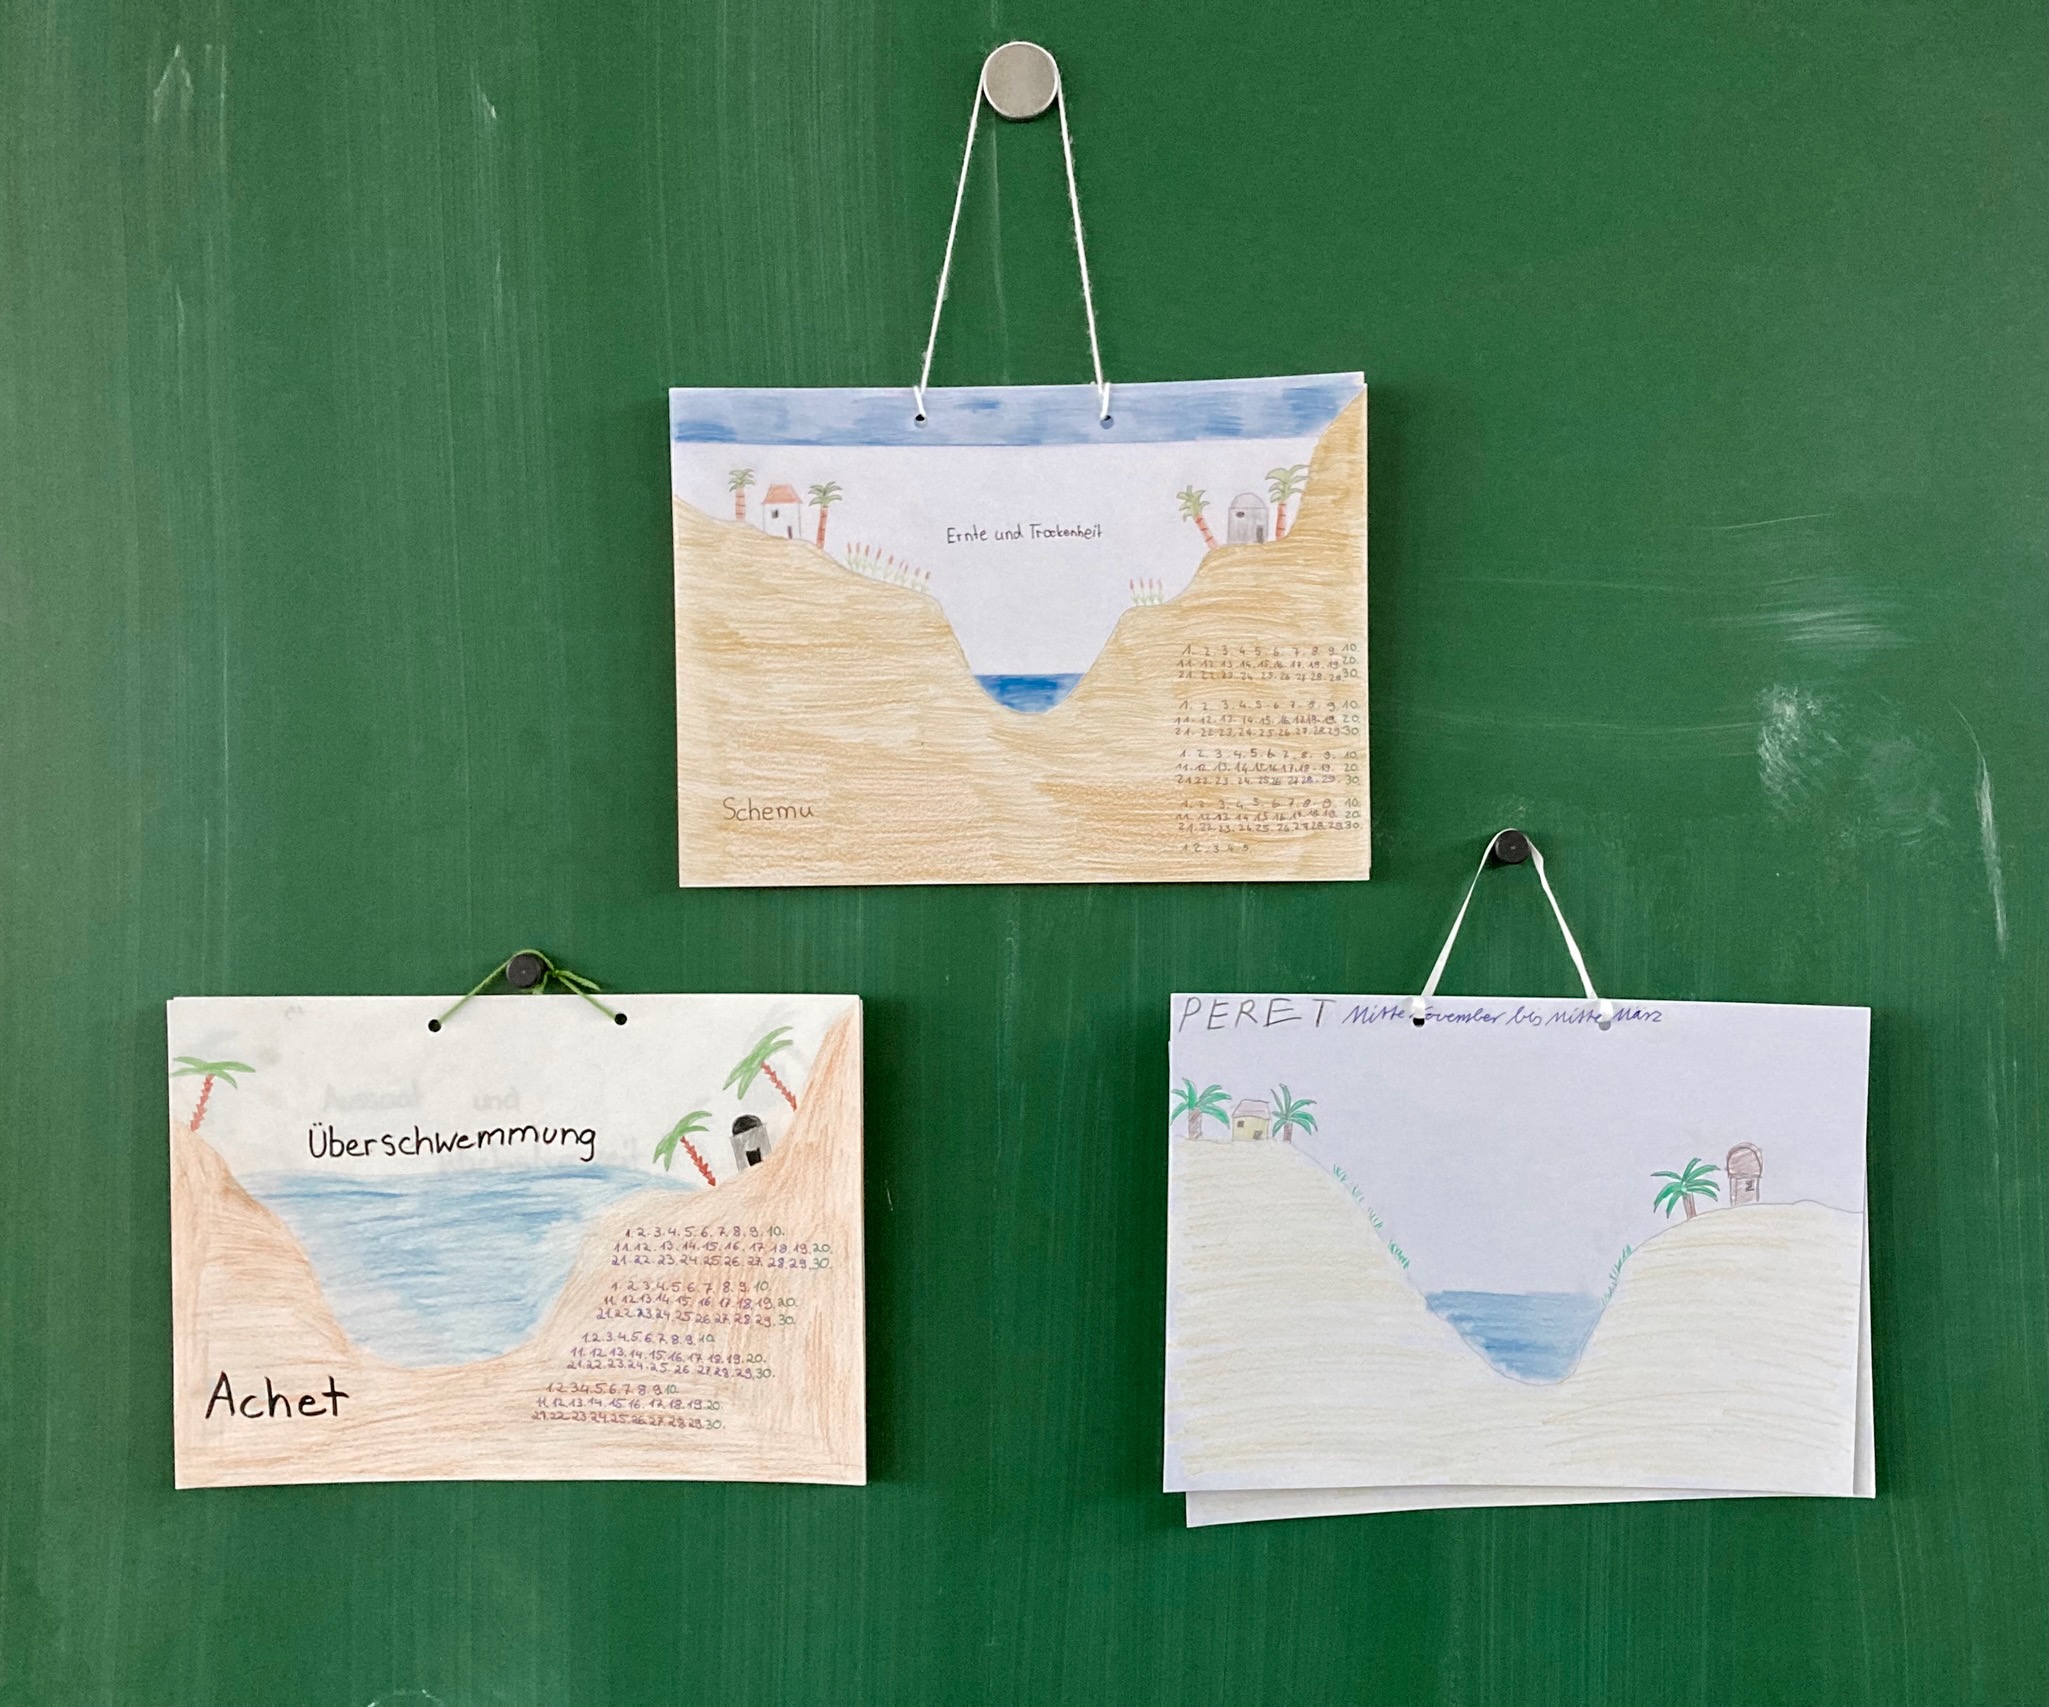 Ernte und Trockenheit
1. 2. 3. 4. 5. 6. 7. 8. 9. 10.
11. 12. 13. 14. 15. 16. 17. 18. 19. 20.
21. 22. 23. 24. 25. 26. 27. 28. 29. 30.
1. 2. 3. 4. 5. 6. 7. 8. 9. 10.
11. 12. 13. 14. 15. 16. 17. 18. 19. 20.
21. 22. 23. 24. 25. 26. 27. 28. 29. 30.
1. 2. 3. 4. 5. 6. 7. 8. 9. 10.
11. 12. 13. 14. 15. 16. 17. 18. 19. 20.
21. 22. 23. 24. 25. 26. 27. 28. 29. 30.
1. 2. 3. 4. 5. 6. 7. 8. 9. 10.
11. 12. 13. 14. 15. 16. 17. 18. 19. 20.
21. 22. 23. 24. 25. 26. 27. 28. 29. 30.
1. 2. 3. 4. 5.
Schemu
Aussaat und
Überschwemmung
1. 2. 3. 4. 5. 6. 7. 8. 9. 10.
11. 12. 13. 14. 15. 16. 17. 18. 19. 20.
21. 22. 23. 24. 25. 26. 27. 28. 29. 30.
1. 2. 3. 4. 5. 6. 7. 8. 9. 10.
11. 12. 13. 14. 15. 16. 17. 18. 19. 20.
21. 22. 23. 24. 25. 26. 27. 28. 29. 30.
1. 2. 3. 4. 5. 6. 7. 8. 9. 10.
11. 12. 13. 14. 15. 16. 17. 18. 19. 20.
21. 22. 23. 24. 25. 26. 27. 28. 29. 30.
1. 2. 3 4. 5. 6. 7. 8. 9. 10.
11. 12. 13. 14. 15. 16. 17. 18. 19. 20.
21. 22. 23. 24. 25. 26. 27. 28. 29. 30.
Achet
PERET Mitte November bis Mitte März